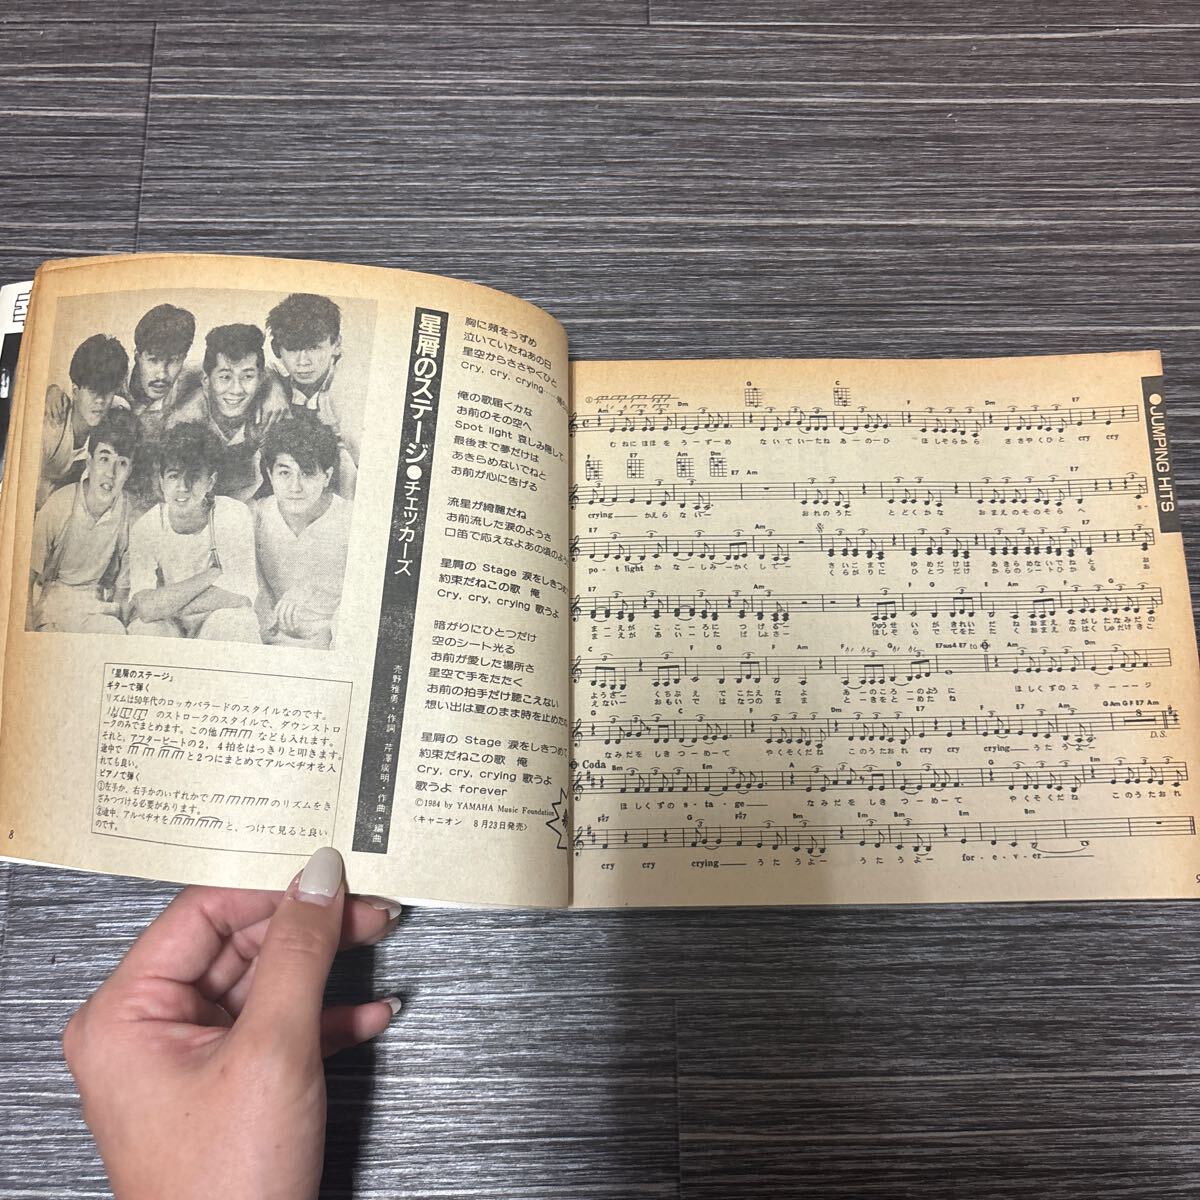 星屑のステージ●チェッカーズ
売野雅勇・作詞 芹澤廣明・作曲・編曲
胸に頬をうずめ
泣いていたねあの日
星空からささやくひと
Cry, cry, crying……
俺の歌届くかな
お前のその空へ
Spot light 哀しみ隠して
最後まで夢だけは
あきらめないでねと
お前が心に告げる
流星が綺麗だね
お前流した涙のようさ
口笛で応えなよあの頃のよう
星屑の Stage 涙をしきつめ
約束だねこの歌 俺
Cry, cry, crying 歌うよ
暗がりにひとつだけ
空のシート光る
お前が愛した場所さ
星空で手をたたく
お前の拍手だけ聴こえない
想い出は夏のまま時を止めた
星屑の Stage 涙をしきつめて
約束だねこの歌 俺
Cry, cry, crying 歌うよ
歌うよ forever
©1984 by YAMAHA Music Foundation
〈キャニオン 8月23日発売〉
「星屑のステージ」
ギターで弾く
リズムは50年代のロッカバラードのスタイルなのです。
のストロークのスタイルで、ダウンストロ
ークのみでまとめます。この他 なども入れます。
それと、アフタービートの2、4拍をはっきりと叩きます。
途中で と2つにまとめてアルペヂオを入
れても良い。
ピアノで弾く
①左手か、右手かのいずれかで のリズムをき
ざみつづける必要があります。
②途中、アルペヂオを と、つけて見ると良い
のです。
8
●JUMPING HITS
① Am Dm G C F Dm E7
むねにほほを うーずーめ ないていーたね あーのーひ ほしぞらから ささやくひと cry cry
F E7 Am Dm E7 Am
crying── かえら ないー おれのうた とどくかな おまえのそのそら へ s-
E7 Am
po-t light か なーしみーかくしてー さいごまで ゆめだけは あきらめないでねと お
くらがりに ひとつだけ からのシートひかる お
E7 Am F G E Am F G
まーえが こころに つげるー
まえが あいーした ばしょさー
C F E7sus4 E7 to
ようさー くちぶえ で こたえな よ あーのころーのように ほしくずの ス テ ー ー ジ
えないー おもいで は なつのま ま ときーをとめた
G C F Dm E7 Am G Am G F E7 Am
なみだを しきつめーて やくそくだね このうたおれ cry cry crying── うたう よー
8
D.S.
Coda
ほしくずの s・ta・ge── なみだを しき つめーて やくそくだね このうたおれ
cry cry crying── うたうよー うたうよー for-e-ver──